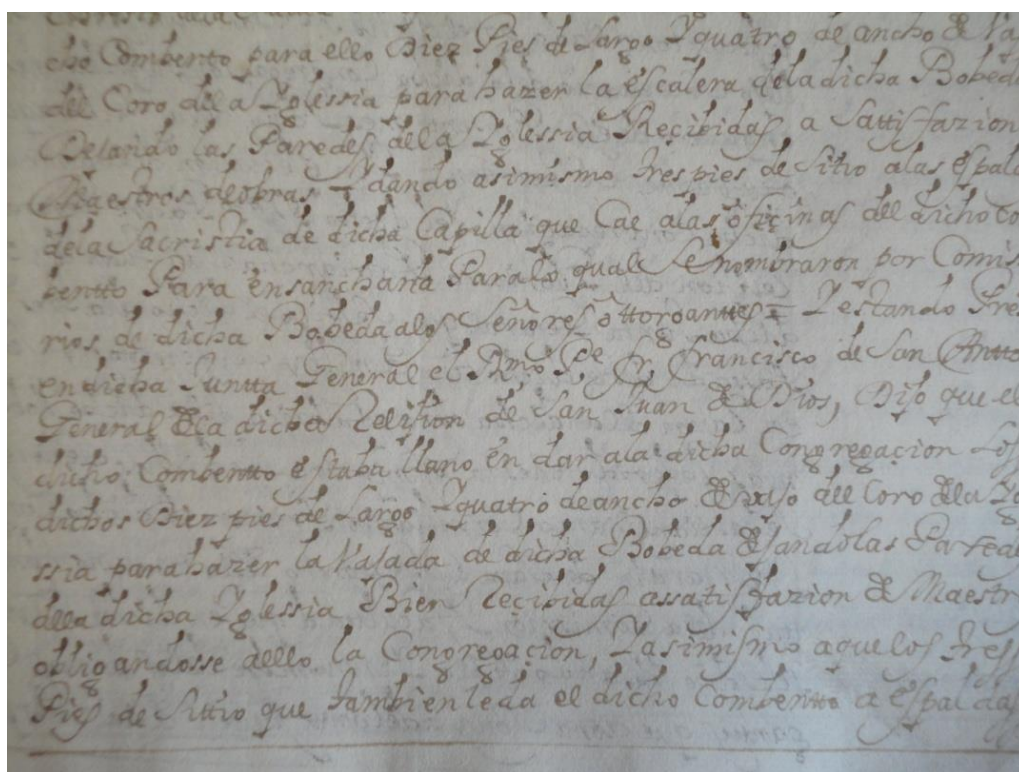 cho Combento para ello Diez Pies de Largo Y quatro de ancho de Va
del Coro de la Yglessia para hazer la escalera de la dicha Bobeda
Dejando las Paredes de la Yglessia Recibidas a Sattisfazion
Maestros de obras Y dando asimismo tres pies de Sitio a las espald
de la Sacristia de dicha Capilla que Cae a las oficinas del dicho Co
bentto Para ensancharla Para lo qual se nombraron por Comis
rios de dicha Bobeda a los Señores ottorganttes = Y estando Pres
en dicha Juntta General el Rmo Pe fr. francisco de San Antto
General de la dicha Relijion de San Juan de Dios, Dijo que el
dicho Combentto estaba llano en dar a la dicha Congregacion Los
dichos Diez pies de Largo Y quatro de ancho de vajo del Coro de la Yg
ssia para hazer la Vajada de dicha Bobeda dejando las Parede
de la dicha Yglessia Bien Recibidas a ssatisfazion de Maestr
obligandosse a ello la Congregacion, Y asimismo a que los tres
Pies de Sittio que tambien le da el dicho Combentto a espaldas